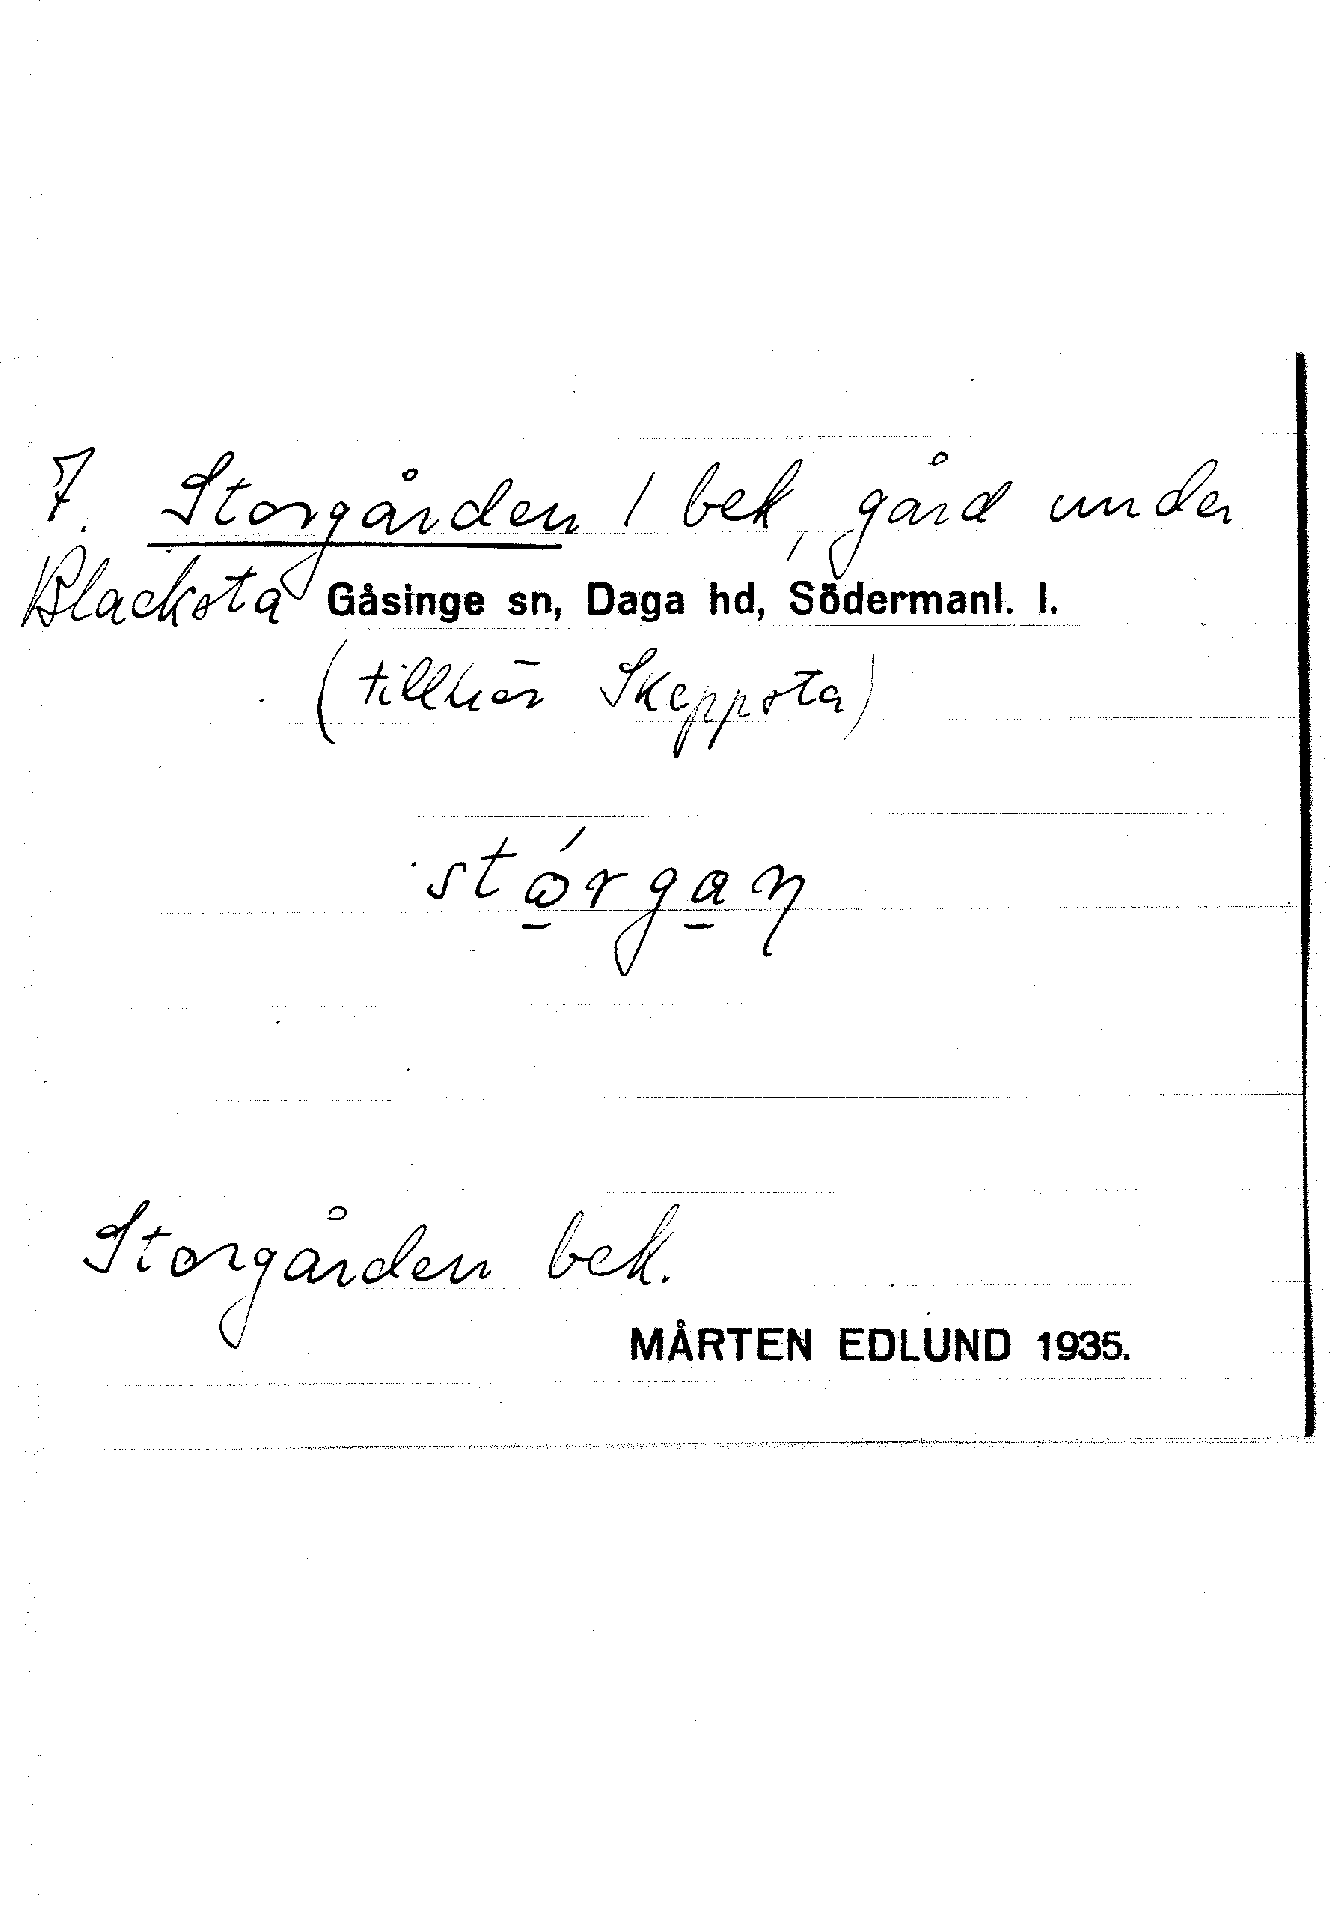 7. Storgården / bek, gård under
Blacksta Gåsinge sn, Daga hd, Södermanl. l.
(tillhör Skeppsta)
stórgaɳ
Storgården bek.
MÅRTEN EDLUND 1935.